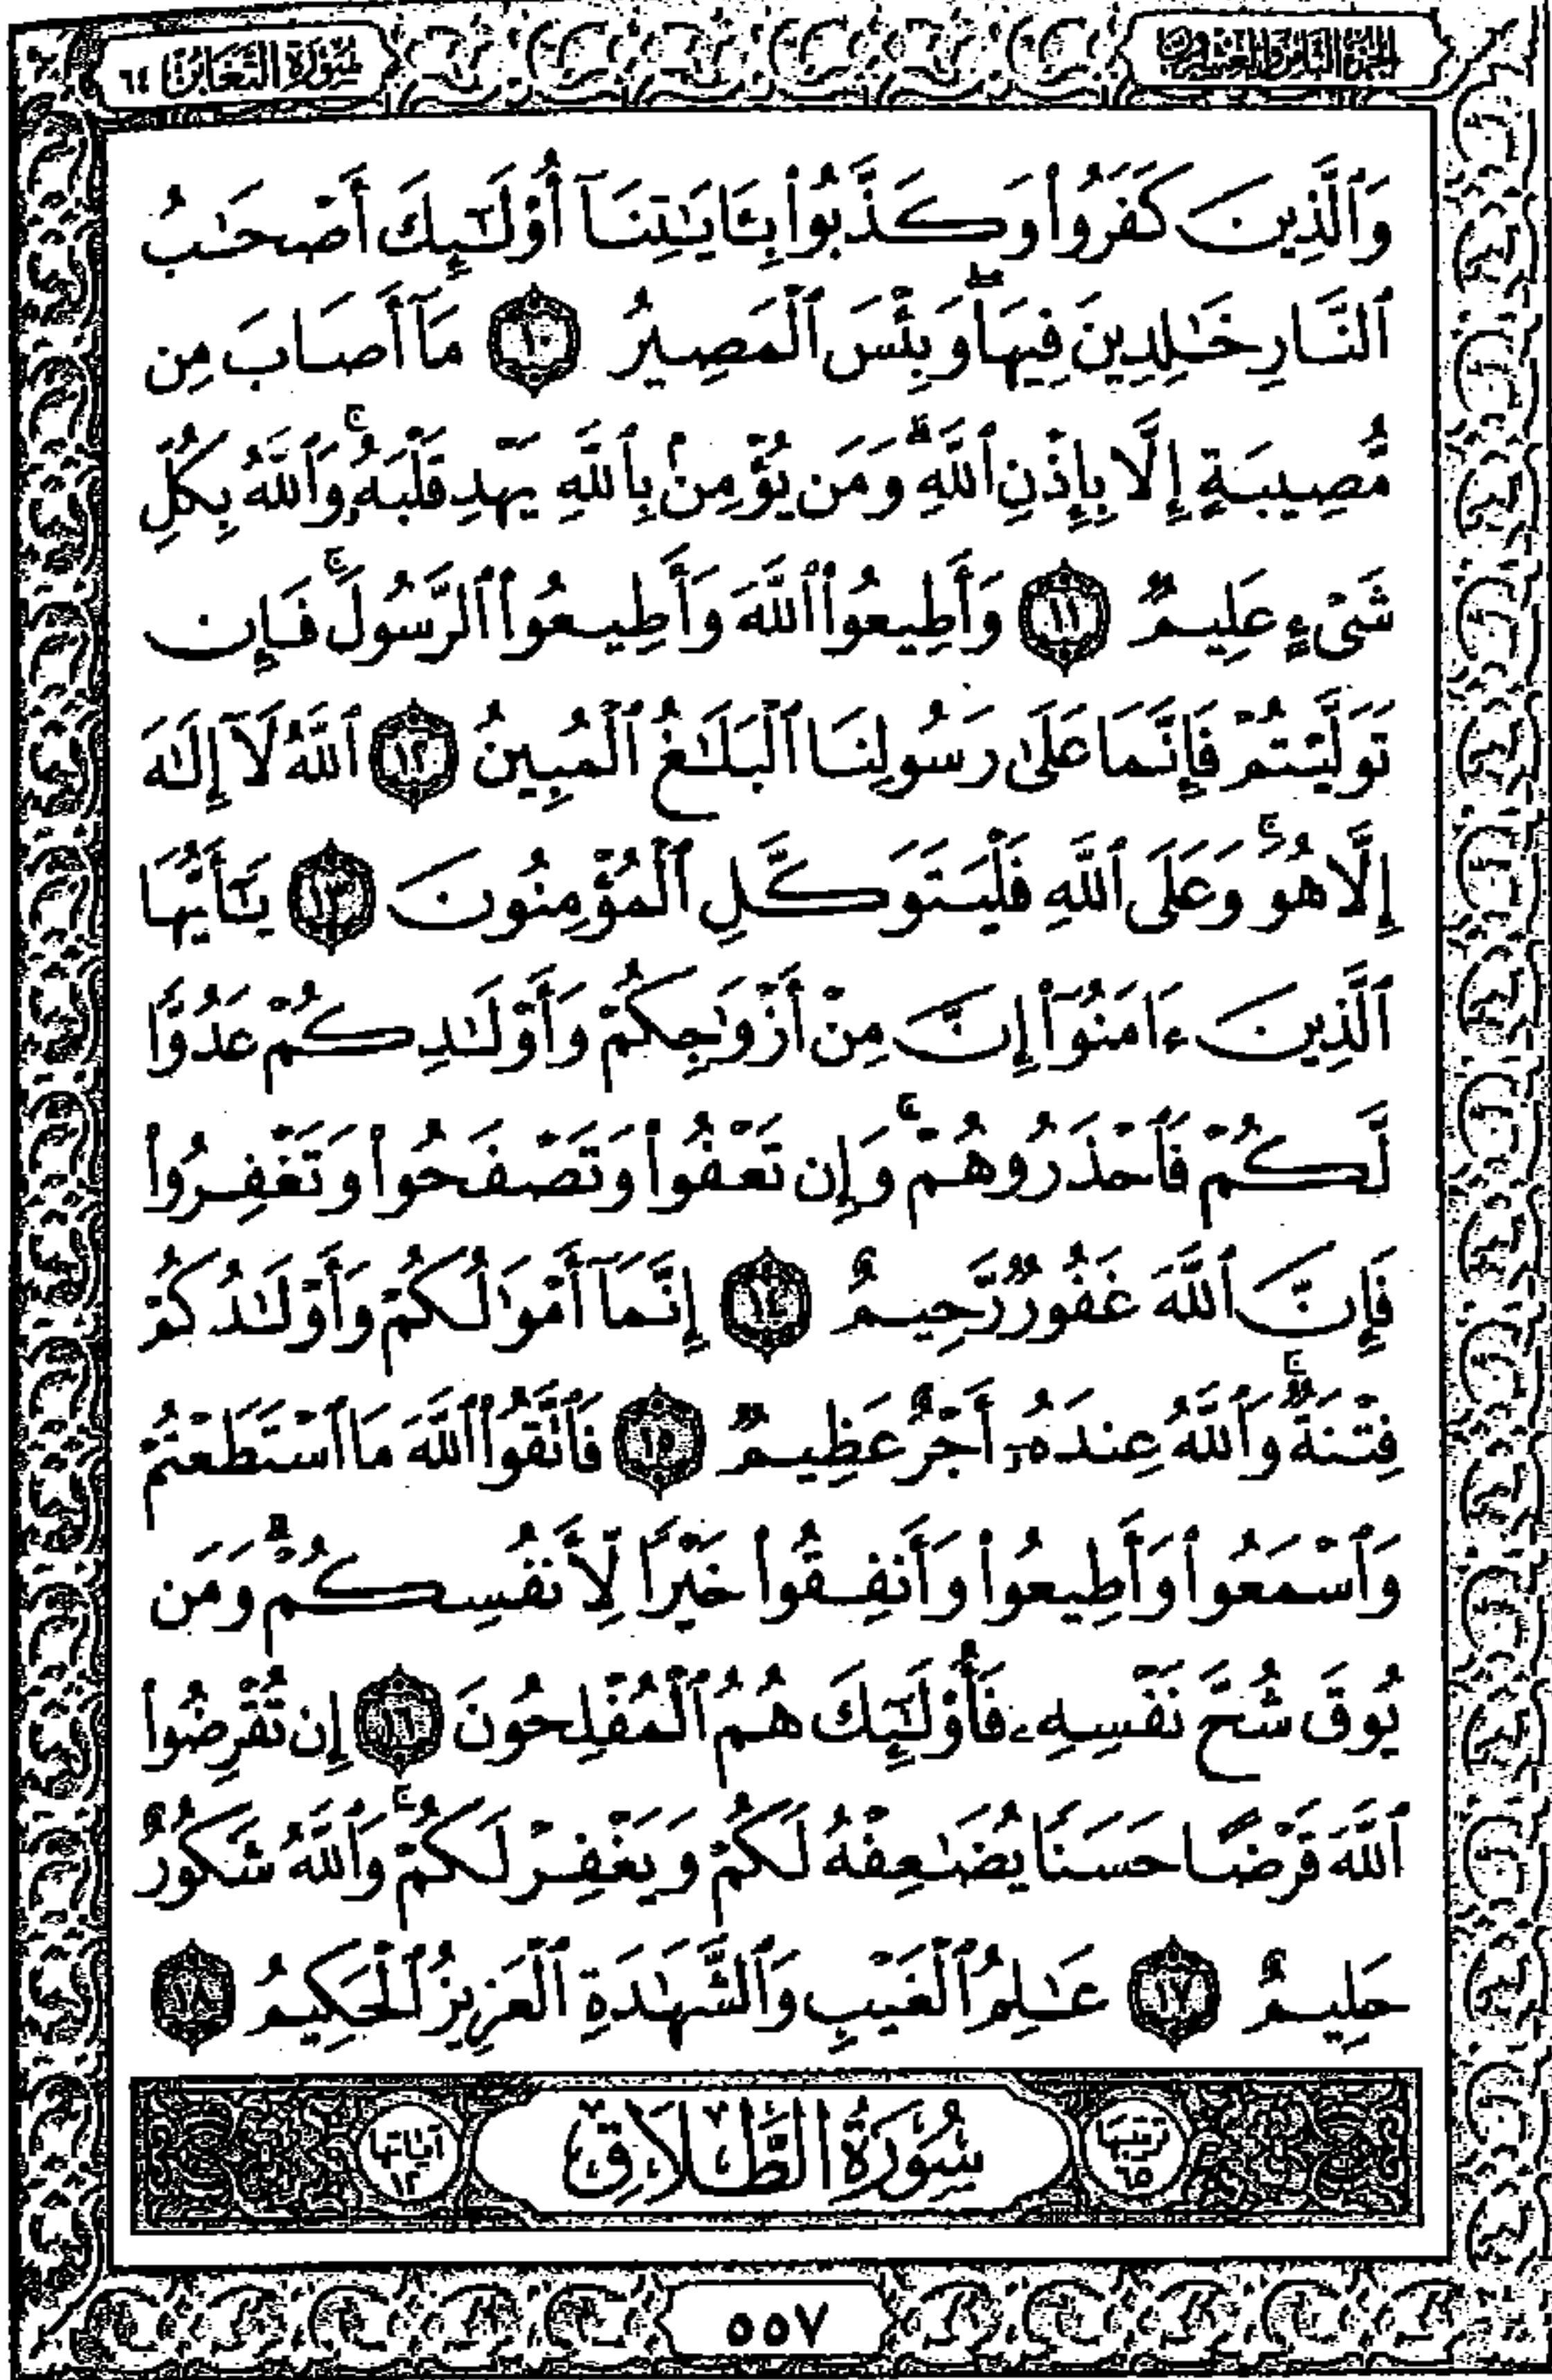 الجزء الثامن والعشرون
سورة التغابن ٦٤
وَٱلَّذِينَ كَفَرُوا۟ وَكَذَّبُوا۟ بِـَٔايَـٰتِنَآ أُو۟لَـٰٓئِكَ أَصْحَـٰبُ
ٱلنَّارِ خَـٰلِدِينَ فِيهَا ۖ وَبِئْسَ ٱلْمَصِيرُ ١٠ مَآ أَصَابَ مِن
مُّصِيبَةٍ إِلَّا بِإِذْنِ ٱللَّهِ ۗ وَمَن يُؤْمِنۢ بِٱللَّهِ يَهْدِ قَلْبَهُۥ ۚ وَٱللَّهُ بِكُلِّ
شَىْءٍ عَلِيمٌ ١١ وَأَطِيعُوا۟ ٱللَّهَ وَأَطِيعُوا۟ ٱلرَّسُولَ ۚ فَإِن
تَوَلَّيْتُمْ فَإِنَّمَا عَلَىٰ رَسُولِنَا ٱلْبَلَـٰغُ ٱلْمُبِينُ ١٢ ٱللَّهُ لَآ إِلَـٰهَ
إِلَّا هُوَ ۚ وَعَلَى ٱللَّهِ فَلْيَتَوَكَّلِ ٱلْمُؤْمِنُونَ ١٣ يَـٰٓأَيُّهَا
ٱلَّذِينَ ءَامَنُوٓا۟ إِنَّ مِنْ أَزْوَٰجِكُمْ وَأَوْلَـٰدِكُمْ عَدُوًّا
لَّكُمْ فَٱحْذَرُوهُمْ ۚ وَإِن تَعْفُوا۟ وَتَصْفَحُوا۟ وَتَغْفِرُوا۟
فَإِنَّ ٱللَّهَ غَفُورٌ رَّحِيمٌ ١٤ إِنَّمَآ أَمْوَٰلُكُمْ وَأَوْلَـٰدُكُمْ
فِتْنَةٌ ۚ وَٱللَّهُ عِندَهُۥٓ أَجْرٌ عَظِيمٌ ١٥ فَٱتَّقُوا۟ ٱللَّهَ مَا ٱسْتَطَعْتُمْ
وَٱسْمَعُوا۟ وَأَطِيعُوا۟ وَأَنفِقُوا۟ خَيْرًا لِّأَنفُسِكُمْ ۗ وَمَن
يُوقَ شُحَّ نَفْسِهِۦ فَأُو۟لَـٰٓئِكَ هُمُ ٱلْمُفْلِحُونَ ١٦ إِن تُقْرِضُوا۟
ٱللَّهَ قَرْضًا حَسَنًا يُضَـٰعِفْهُ لَكُمْ وَيَغْفِرْ لَكُمْ ۚ وَٱللَّهُ شَكُورٌ
حَلِيمٌ ١٧ عَـٰلِمُ ٱلْغَيْبِ وَٱلشَّهَـٰدَةِ ٱلْعَزِيزُ ٱلْحَكِيمُ ١٨
ترتيبها ٦٥ سُورَةُ الطَّلَاقِ آياتها ١٢
٥٥٧